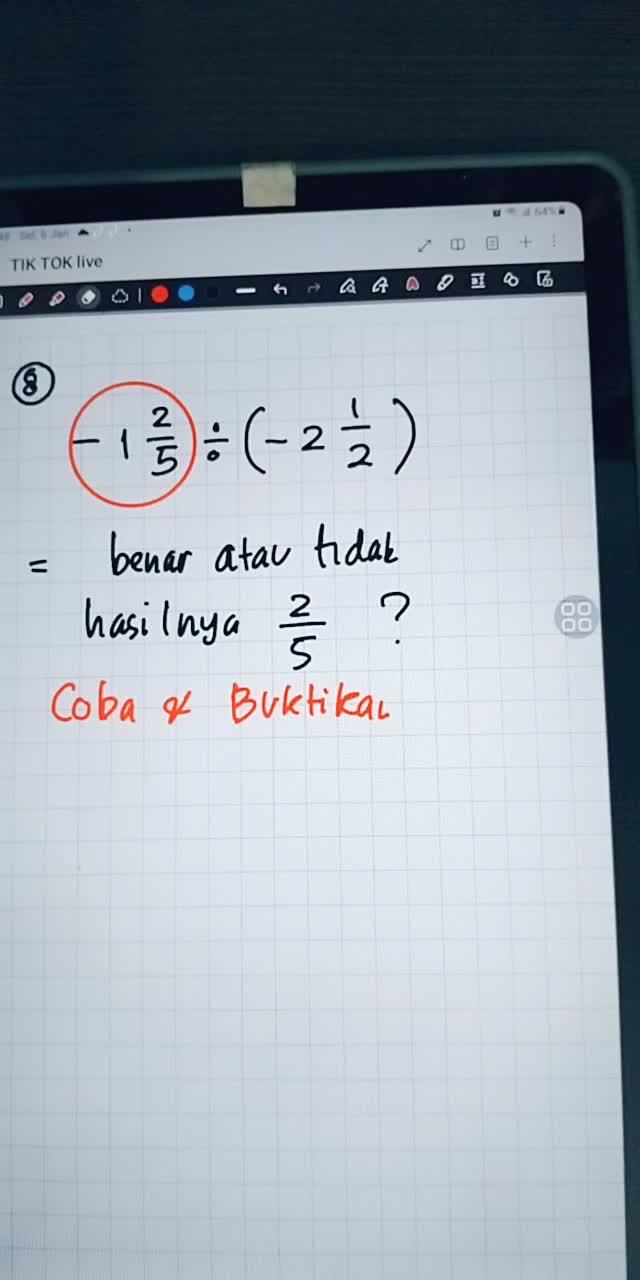 Sel, 6 Jan
64%
TIK TOK live
⑧
- 1 2/5 ÷ (- 2 1/2)
= benar atau tidak
hasilnya 2/5 ?
Coba & Buktikan